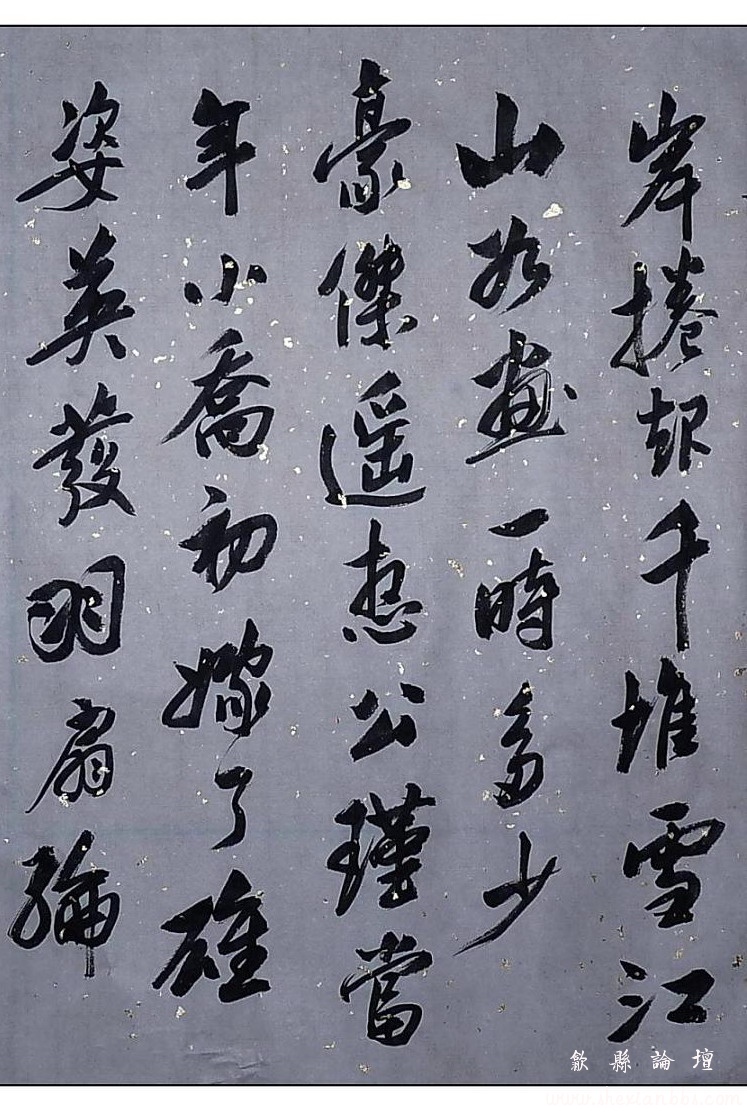 岸捲起千堆雪江
山如畫一時多少
豪傑遥想公瑾當
年小喬初嫁了雄
姿英發羽扇綸
歙縣論壇